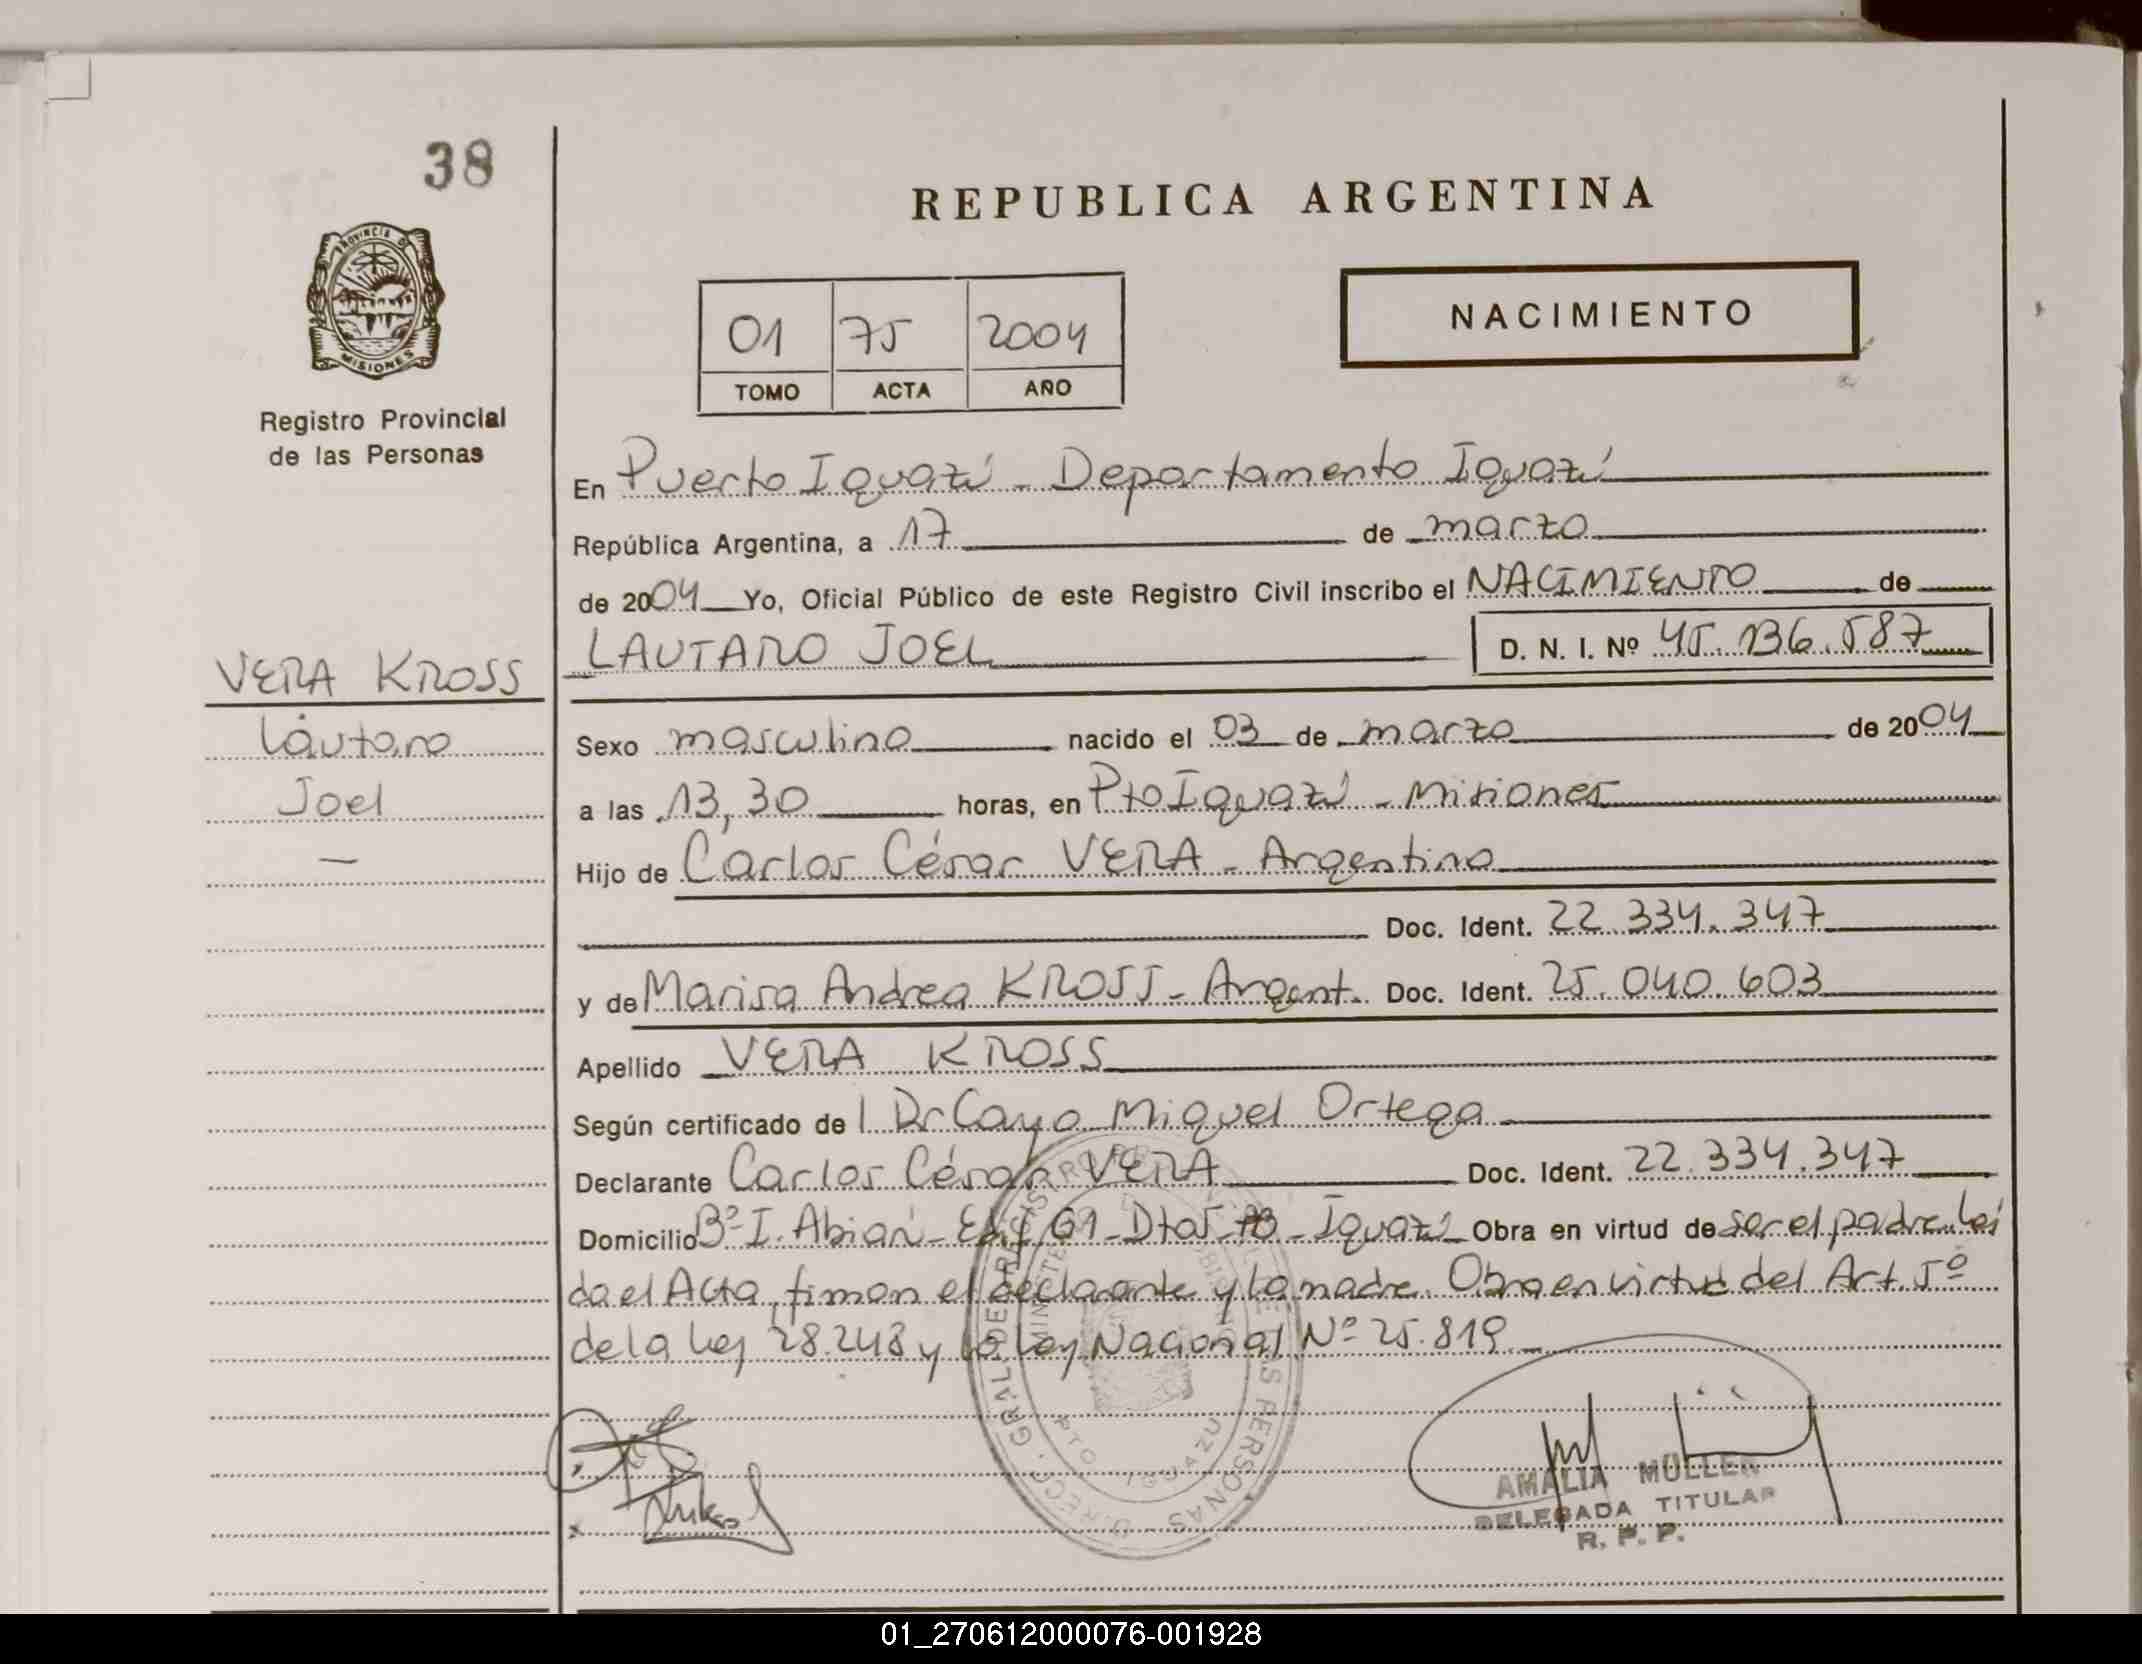 38
REPUBLICA ARGENTINA
PROVINCIA DE
MISIONES
Registro Provincial
de las Personas
01 75 2004
TOMO ACTA AÑO
NACIMIENTO
En Puerto Iguazú - Departamento Iguazú
República Argentina, a 17 de marzo
de 2004 Yo, Oficial Público de este Registro Civil inscribo el NACIMIENTO de
LAUTARO JOEL D. N. I. Nº 45.136.587
VERA KROSS
Lautaro
Joel
—
Sexo masculino nacido el 03 de marzo de 2004
a las 13,30 horas, en Pto Iguazú - Misiones
Hijo de Carlos César VERA - Argentino
Doc. Ident. 22.334.347
y de Marisa Andrea KROSS - Argent. Doc. Ident. 25.040.603
Apellido VERA KROSS
Según certificado de l Dr Cayo Miguel Ortega
Declarante Carlos César VERA Doc. Ident. 22.334.347
Domicilio Bº I. Abian - Edif 61 - Dto - Iguazú Obra en virtud de ser el padre. Leí
da el Acta, firman el declarante y la madre. Obra en virtud del Art. 5º
de la Ley 28.248 y la Ley Nacional Nº 25.819
D. RECC. GRAL. DE REGISTRO DE LAS PERSONAS
PTO IGUAZU
AMALIA MULLER
DELEGADA TITULAR
R. P. P.
01_270612000076-001928